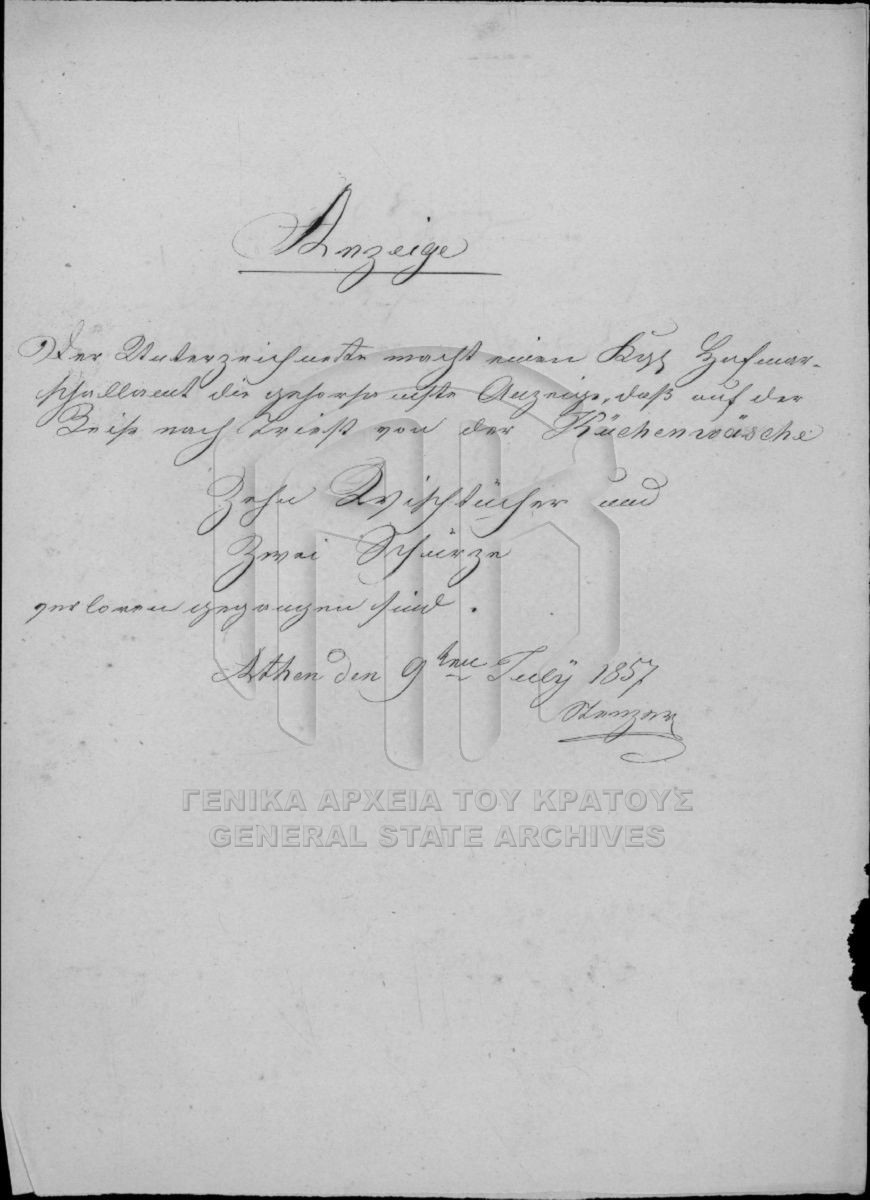 Anzeige
Der Unterzeichnete macht einen Kgl Hofmar-
schallamt die gehorsamste Anzeige, daß auf der
Reise nach Triest von der Küchenwäsche
Zehn Wischtücher und
Zwei Schürze
verloren gegangen sind.
Athen den 9ten July 1857
ΓΕΝΙΚΑ ΑΡΧΕΙΑ ΤΟΥ ΚΡΑΤΟΥΣ
GENERAL STATE ARCHIVES